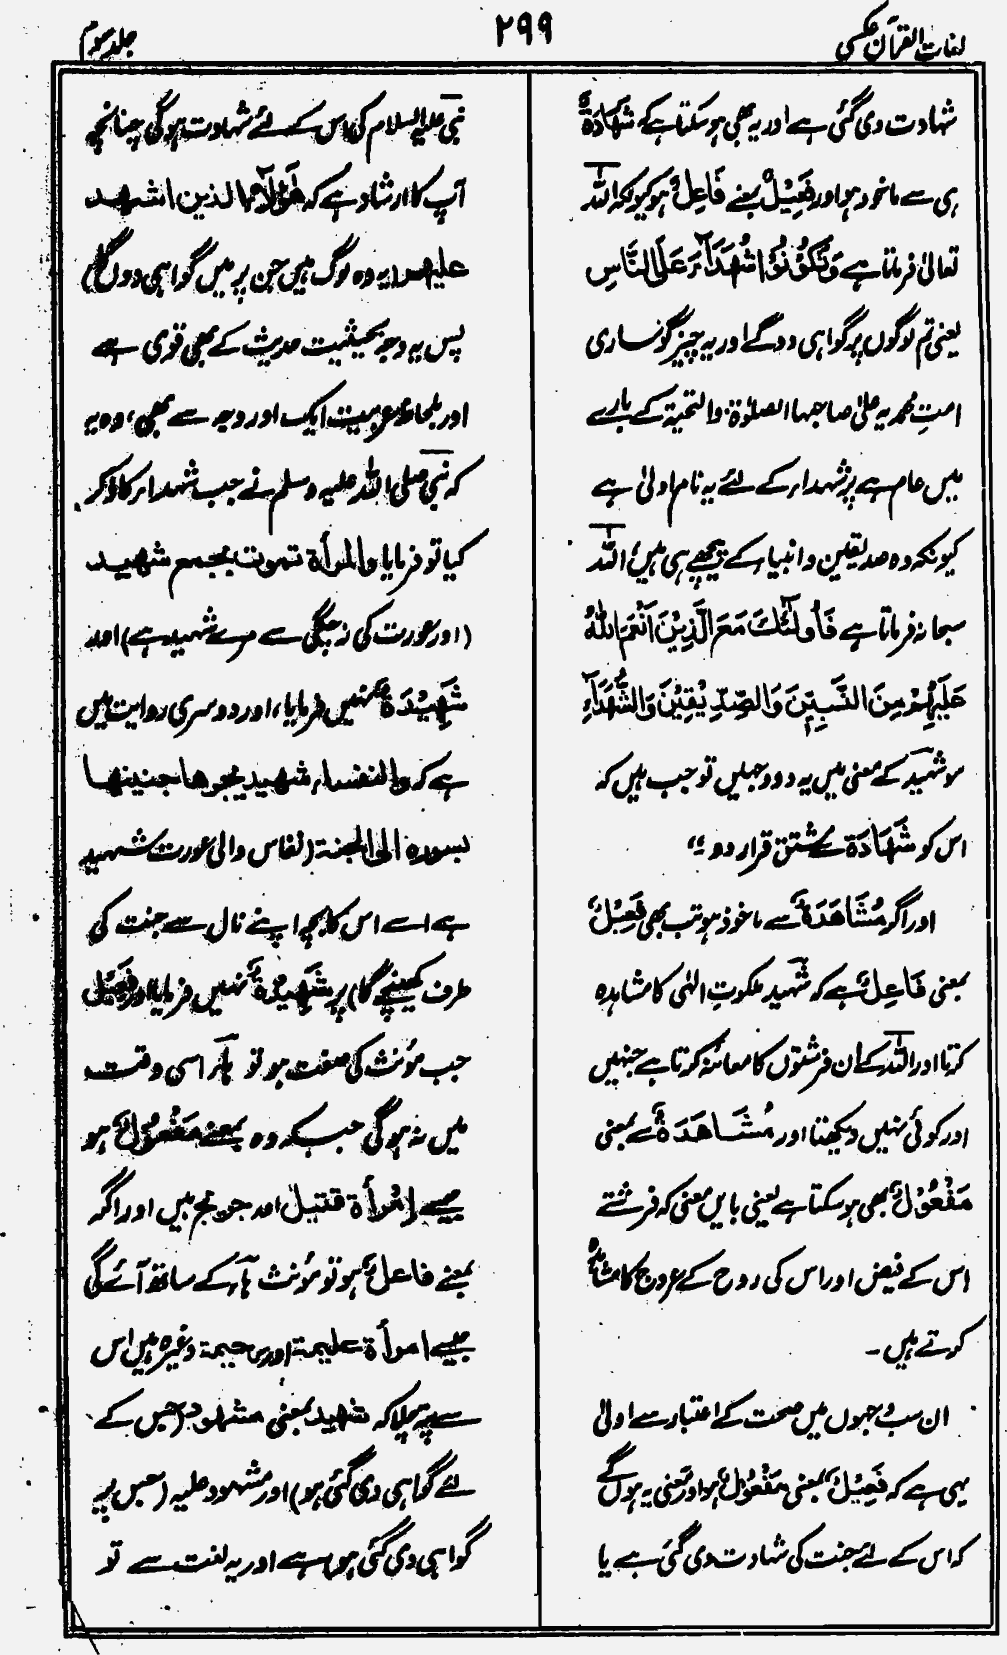 لغات القرآن عکسی
۲۹۹
جلد سوم
شہادت دی گئی ہے اور یہ بھی ہوسکتا ہے کہ شَهَادَةٌ
ہی سے ماخوذ ہو اور فَعِيْلٌ بمعنے فَاعِلٌ ہو کیونکہ اللہ
تعالیٰ فرماتا ہے وَتَكُوْنُوْا شُهَدَآءَ عَلَى النَّاسِ
یعنی تم لوگوں پر گواہی دو گے اور یہ چیز گو ساری
امتِ محمدیہ علیٰ صاحبہا الصلوٰۃ والتحیۃ کے بارے
میں عام ہے پر شہداء کے لئے یہ نام اولیٰ ہے
کیونکہ وہ صدیقین و انبیاء کے پیچھے ہی ہیں، اللہ
سبحانہ فرماتا ہے فَأُولٰٓئِكَ مَعَ الَّذِيْنَ اَنْعَمَ اللّٰهُ
عَلَيْهِمْ مِنَ النَّبِيّٖنَ وَالصِّدِّيْقِيْنَ وَالشُّهَدَآءِ
سو شہید کے معنی میں یہ دو وجہیں تو جب ہیں کہ
اس کو شَهَادَة سے مشتق قرار دو ؛،
اور اگر مُشَاهَدَةٌ سے ماخوذ ہو تب بھی فَعِيْلٌ
بمعنی فَاعِلٌ ہے کہ شہید ملکوتِ الٰہی کا مشاہدہ
کرتا اور اللہ کے ان فرشتوں کا معائنہ کرتا ہے جنہیں
اور کوئی نہیں دیکھتا اور مُشَاهَدَةٌ سے بمعنی
مَفْعُوْلٌ بھی ہو سکتا ہے یعنی بایں معنی کہ فرشتے
اس کے فیض اور اس کی روح کے عروج کا مشاہدہ
کرتے ہیں۔
ان سب وجہوں میں صحت کے اعتبار سے اولیٰ
یہی ہے کہ فَعِيْلٌ بمعنی مَفْعُوْلٌ ہو اور معنی یہ ہوں گے
کہ اس کے لئے جنت کی شہادت دی گئی ہے یا
نبی علیہ السلام کی اس کے لئے شہادت ہو گی چنانچہ
آپ کا ارشاد ہے کہ هٰؤلآء الذين اشهد
عليهم (یہ وہ لوگ ہیں جن پر میں گواہی دوں گا)
پس یہ وجہ بحیثیت حدیث کے بھی قوی ہے
اور بلحاظ عربیت ایک اور وجہ سے بھی، وہ یہ
کہ نبی صلی اللہ علیہ وسلم نے جب شہداء کا ذکر
کیا تو فرمایا والمرأة تموت بجمع شهيد
(اور عورت کی زچگی سے مرے شہید ہے) اور
شَهِيْدَةٌ نہیں فرمایا، اور دوسری روایت میں
ہے کہ والنفساء شهيد يجرها جنينها
بسرره الى الجنة (نفاس والی عورت شہید
ہے اسے اس کا بچہ اپنے نال سے جنت کی
طرف کھینچے گا) پر شَهِيْدَةٌ نہیں فرمایا اور فَعِيْلٌ
جب مؤنث کی صفت ہو تو ہاء اسی وقت
میں نہ ہو گی جب کہ وہ بمعنے مَفْعُوْلٌ ہو
جیسے اِمْرَأَة قتيل اور جریح ہیں اور اگر
بمعنے فاعلٌ ہو تو مؤنث ہاء کے ساتھ آئے گی
جیسے امرأة عليمة اور رحيمة وغیرہ ہیں اس
سے پتہ چلا کہ شهيد بمعنی مشهود (جس کے
لئے گواہی دی گئی ہو) اور مشہود علیہ (جس پر
گواہی دی گئی ہو) ہے اور یہ لغت سے تو